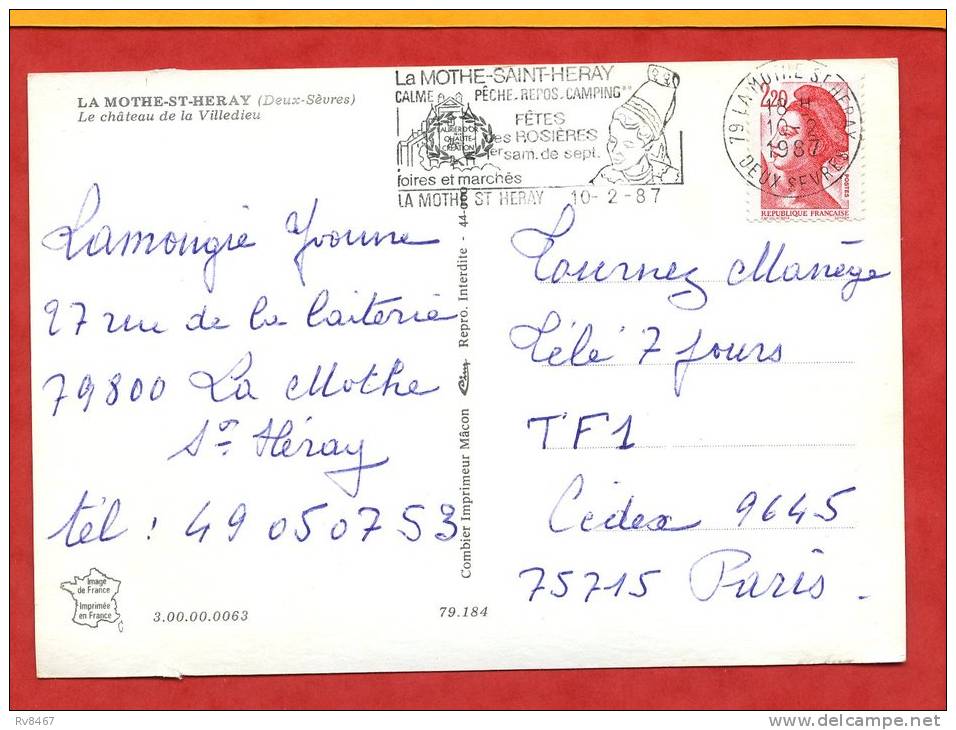 LA MOTHE-ST-HERAY (Deux-Sèvres)
Le château de la Villedieu
La MOTHE-SAINT-HERAY
CALME PÊCHE. REPOS. CAMPING**
LAURIER D'OR
QUALITE
CREATION
FÊTES
des ROSIÈRES
1er sam. de sept.
foires et marchés
LA MOTHE ST HERAY 10-2-87
79 LA MOTHE ST HERAY
18 H
1987
DEUX SEVRES
2,20
POSTES
REPUBLIQUE FRANÇAISE
Lamougie Yvonne
27 rue de la laiterie
79800 La Mothe
St Héray
tél : 49 05 07 53
Combier Imprimeur Mâcon Repro. Interdite - 44-000
Tournez Manège
Télé 7 Jours
TF1
Cédex 9645
75715 Paris.
Image
de France
Imprimée
en France
3.00.00.0063
79.184
Rv8467
delcampe.net